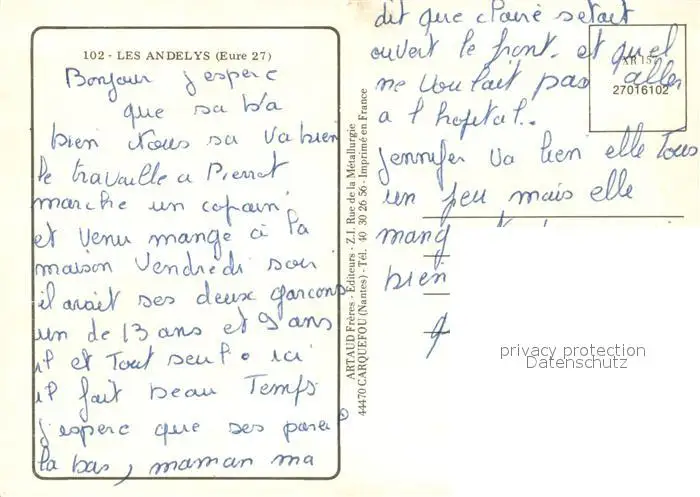 102 - LES ANDELYS (Eure 27)
Bonjour j espere
que sa va
bien Nous sa va bien
le travaille a Pierrot
marche un copain
et venu mangé à la
maison Vendredi soir
il avait ses deux garçons
un de 13 ans et 9 ans
il et Tout seul. ici
il fait beau Temps
j espere que ses pareil
la bas, maman ma
dit que claire setait
ouvert le front. et quel
ne voulait pas aller
a l hopital..
Jennifer va bien elle Tous
un peu mais elle
mang
bien
ARTAUD Frères - Editeurs - Z.I. Rue de la Métallurgie
44470 CARQUEFOU (Nantes) - Tél. 40 30 26 56 - Imprimé en France
AR 157
27016102
privacy protection
Datenschutz